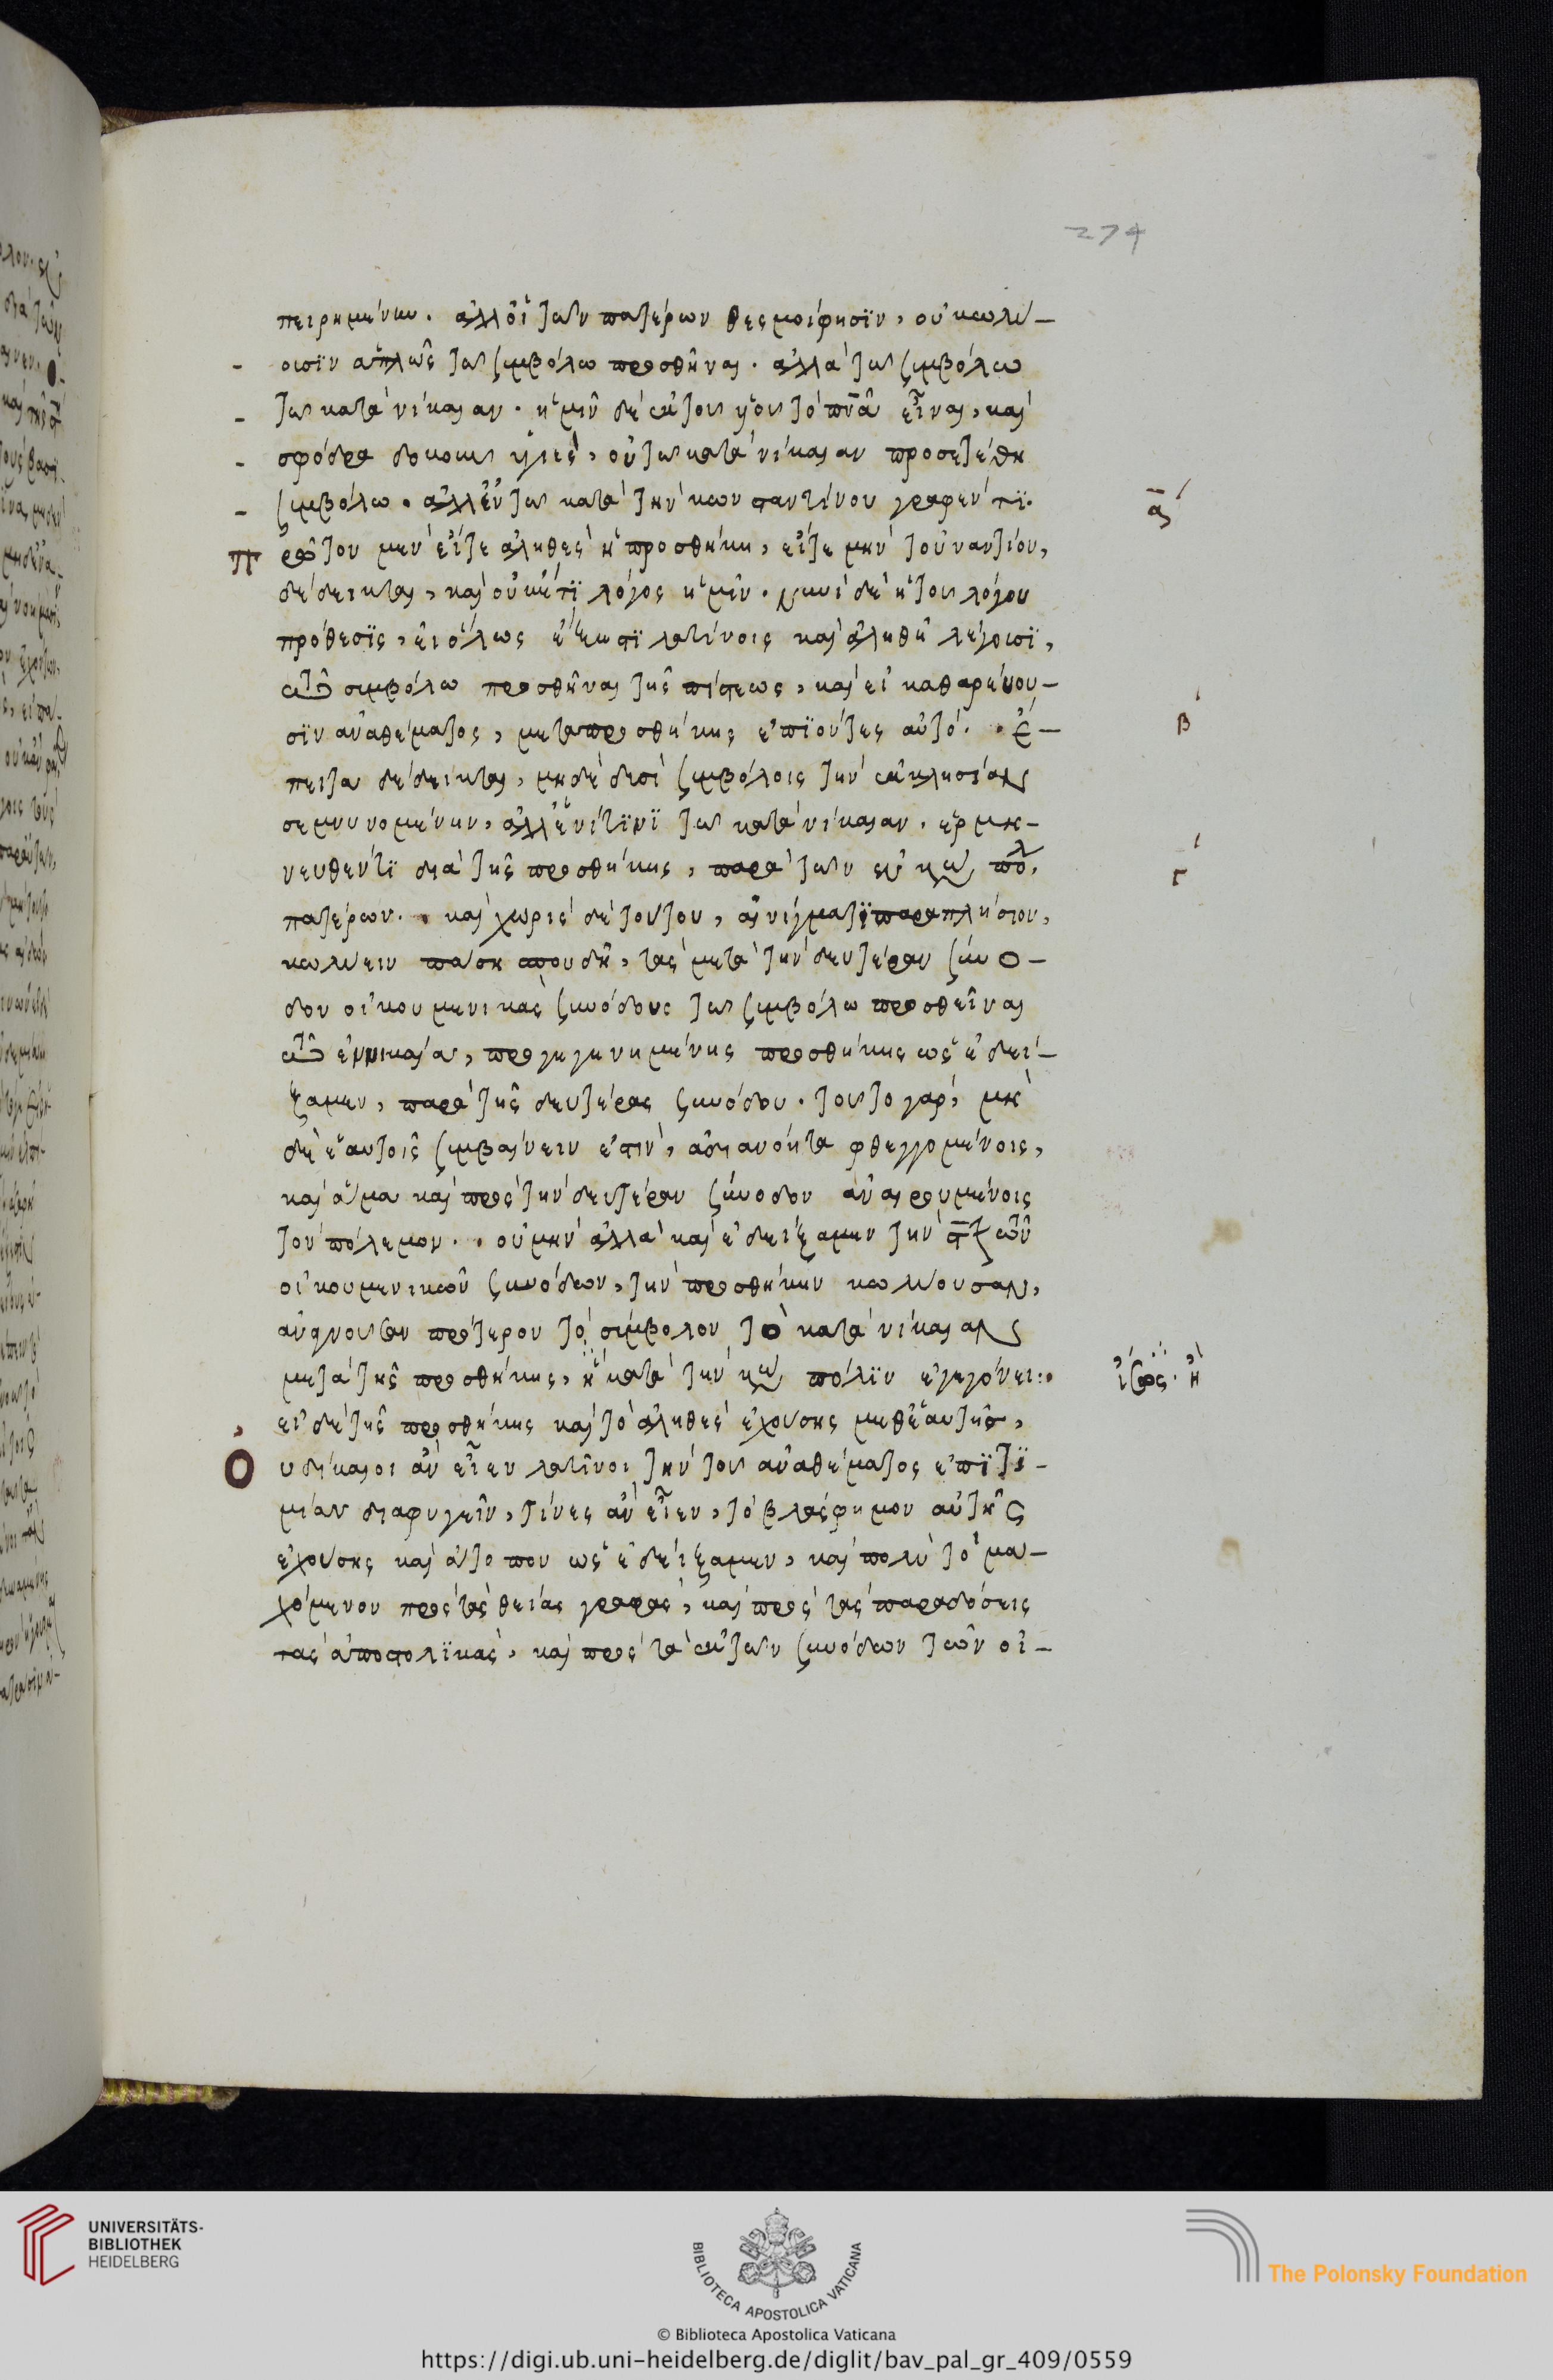 274
πειρημένην. ἀλλ' οἱ τῶν πατέρων θεσμοί φησϊν, οὐ κωλύ-
ουσϊν ἁπλῶς τῶ συμβόλω προσθῆναι. ἀλλὰ τῶ συμβόλω
τῶ κατὰ νίκαιαν. ἡμῖν δὲ ἐκ τοῦ υἱοῦ τὸ πνα εἶναι, καὶ
σφόδρα δοκοῦν ὑγιὲς, οὐ τῶ κατὰ νίκαιαν προσετέθη
συμβόλω. ἀλλ' ἐν τῶ κατὰ τὴν κωνσταντίνου γραφέντϊ.
Πρῶτον μὲν εἴτε ἀληθὲς ἡ προσθήκη, εἴτε μὴν τοὐναντίον,
δέδεικται, καὶ οὐκέτϊ λόγος ἡμῖν. νυνὶ δὲ ἡ τοῦ λόγου
πρόθεσϊς, εἰ ὅλως ἔξεστϊ λατίνοις καὶ ἀληθῆ λέγουσϊ,
ἐν τῶ συμβόλω προσθῆναι τῆς πίστεως, καὶ εἰ καθαρεύου-
σϊν ἀναθέματος, μετὰ προσθήκης ἐπϊόντες αὐτό. ἔ-
πειτα δέδεικται, μὴ δὲ δυσὶ συμβόλοις τὴν ἐκκλησίαν
σεμνυνομένην, ἀλλ' ἑνί τϊνϊ τῶ κατὰ νίκαιαν. ἑρμη-
νευθέντϊ διὰ τῆς προσθήκης, παρὰ τῶν ἐν κων πόλ
πατέρων. καὶ χωρὶς δὲ τούτου, αἰνίγματϊ παραπλήσιον,
κωλύειν πάση σπουδῆ, τὰς μετὰ τὴν δευτέραν σύνο-
δον οἰκουμενικὰς συνόδους τῶ συμβόλω προσθεῖναι
τῶ ἐν νικαία, προγεγενημένης προσθήκης ὡς ἐδεί-
ξαμεν, παρὰ τῆς δευτέρας συνόδου. τοῦτο γὰρ, μὴ
δὲ ἑαυτοῖς συμβαίνειν ἐστὶν, ἀδιανόητα φθεγγομένοις,
καὶ ἅμα καὶ πρὸς τὴν δευτέραν σύνοδον ἀναιρουμένοις
τὸν πόλεμον. οὐ μὴν ἀλλὰ καὶ ἐδείξαμεν τὴν γ τῶν
οἰκουμενικῶν συνόδων, τὴν προσθήκην κωλύουσαν,
ἀναγνοῦσαν πρότερον τὸ σύμβολον τὸ κατὰ νίκαιαν
μετὰ τῆς προσθήκης, ἣ κατὰ τὴν κων πόλϊν ἐγεγόνει:
εἰ δὲ τῆς προσθήκης καὶ τὸ ἀληθὲς ἐχούσης μεθ' ἑαυτῆς,
Ουδίκαιοι ἂν εἶεν λατῖνοι τὴν τοῦ ἀναθέματος ἐπϊτϊ-
μίαν διαφυγεῖν, τίνες ἂν εἶεν, τὸ βλάσφημον αὐτῆς
ἐχούσης καὶ ἄτοπον ὡς ἐδείξαμεν, καὶ πολὺ τὸ μα-
χόμενον πρὸς τὰς θείας γραφὰς, καὶ πρὸς τὰς παραδόσεις
τὰς ἀποστολϊκὰς, καὶ πρὸς τὰ ἐκ τῶν συνόδων τῶν οἰ-
α
β
γ
UNIVERSITÄTS-
BIBLIOTHEK
HEIDELBERG
BIBLIOTECA APOSTOLICA VATICANA
The Polonsky Foundation
© Biblioteca Apostolica Vaticana
https://digi.ub.uni-heidelberg.de/diglit/bav_pal_gr_409/0559